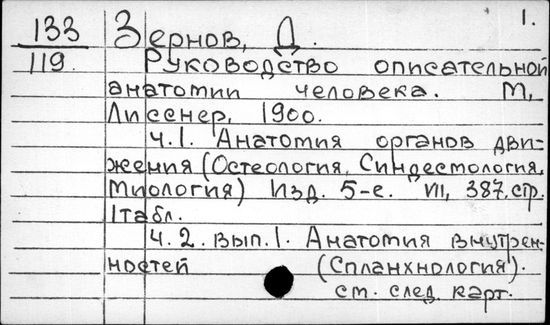 1.
133 Зернов, Д.
119. Руководство описательной
анатомии человека. М,
Лисснер, 1900.
ч.1. Анатомия органов дви-
жения (Остеология, Синдесмология,
Миология) Изд. 5-е. VII, 387, стр.
1табл.
ч.2. вып.1. Анатомия внутрен-
ностей (Спланхнология).
см. след. карт.